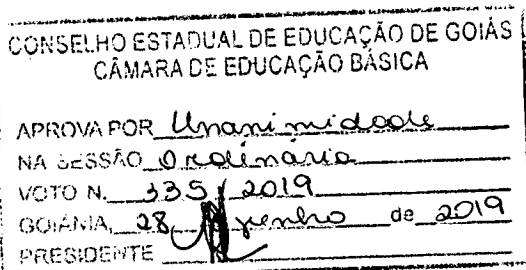 CONSELHO ESTADUAL DE EDUCAÇÃO DE GOIÁS
CÂMARA DE EDUCAÇÃO BÁSICA
APROVA POR Unanimidade
NA SESSÃO Ordinária
VOTO N. 335 / 2019
GOIÂNIA, 28, junho de 2019
PRESIDENTE